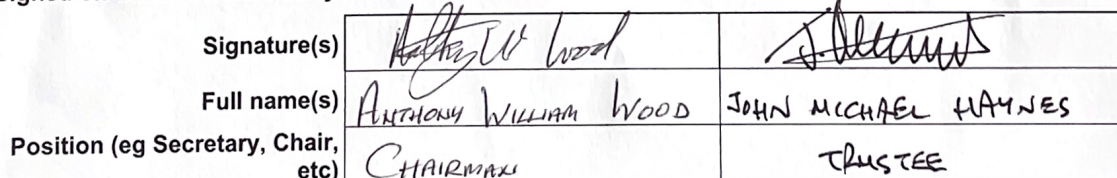 Signature(s) W Wood
Full name(s) ANTHONY WILLIAM WOOD JOHN MICHAEL HAYNES
Position (eg Secretary, Chair, etc) CHAIRMAN TRUSTEE